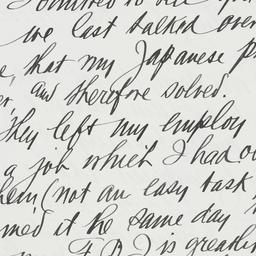 we last talked over
that my Japanese
and therefore solved.
They left my employ
a job which I had
them (not an easy task
it the same day
F.B.I is